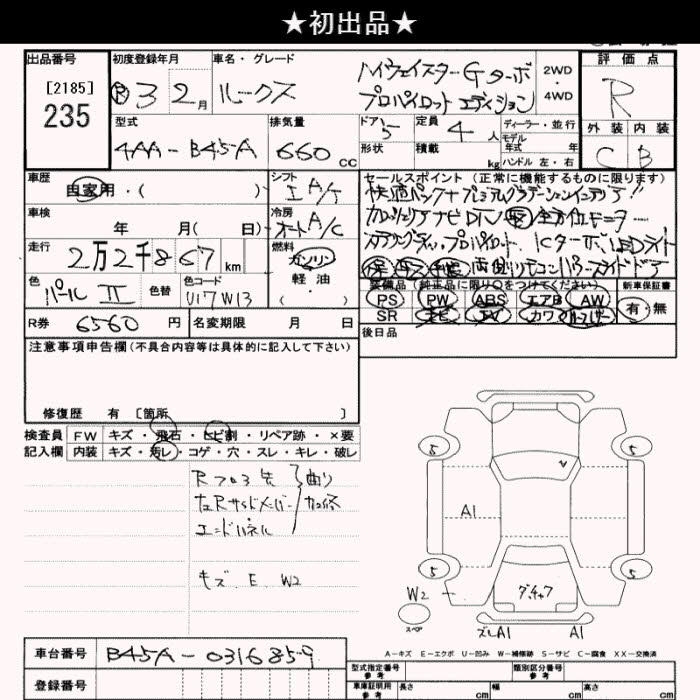 ★初出品★
出品番号
[2185]
235
初度登録年月
車名・グレード
Ⓡ3 2月
ルークス
ハイウェイスターGターボ
プロパイロット エディション
2WD
4WD
評価点
R
外装 内装
C B
型式
4AA-B45A
排気量
660 cc
ドア
5
形状
定員
4人
積載
kg
ディーラー・並行
モデル
年式 年
ハンドル 左・右
車歴
自家用・( )
シフト
I A/T
車検
年 月( 日)
冷房
オートA/C
走行
2万2千867 km
燃料
ガソリン
軽油
( )
色
パールII
色替
色コード
U17W13
R券
6560円
名変期限 月 日
セールスポイント(正常に機能するものに限ります)
快適パック+プレミアムグラデーションインテリア!
カロッツェリアナビ 全方位モニター
ステアリングスイッチ プロパイロット ICターボ LEDライト
両側リモコンパワースライドドア
装備品(純正品に限り○をつけてください)
PS PW ABS エアB AW
SR ナビ TV カワ
新車保証書
有・無
後日品
注意事項申告欄(不具合内容等は具体的に記入して下さい)
修復歴 有 [箇所 ]
検査員
記入欄
FW キズ・飛石・ヒビ割・リペア跡・×要
内装 キズ・汚レ・コゲ・穴・スレ・キレ・破レ
Rフロア先 曲り
左右Rサイドメンバー
エンドパネル
キズ E W2
5
5
A1
A1
5
5
W2
スペア
A1
A1
A-キズ E-エクボ U-凹み W-補修跡 S-サビ C-腐食 XX-交換済
車台番号
B45A-0316859
登録番号
型式指定番号
参考
類別区分番号
参考
車庫証明用
参考
長さ cm
幅 cm
高さ cm